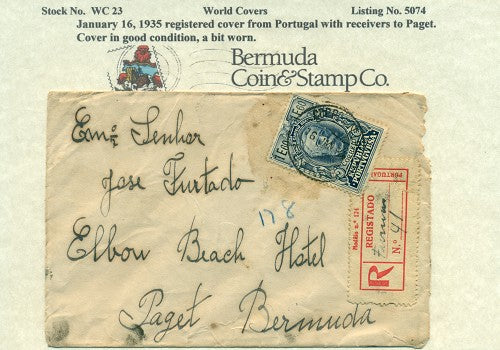 Stock No. WC 23 World Covers Listing No. 5074
January 16, 1935 registered cover from Portugal with receivers to Paget.
Cover in good condition, a bit worn.
Bermuda
Coin&Stamp Co.
Exmº Senhor
Jose Furtado
178
Elbow Beach Hotel
Paget Bermuda
PORTUGAL
Modêlo n.º 124
REGISTADO
N.º 91
R